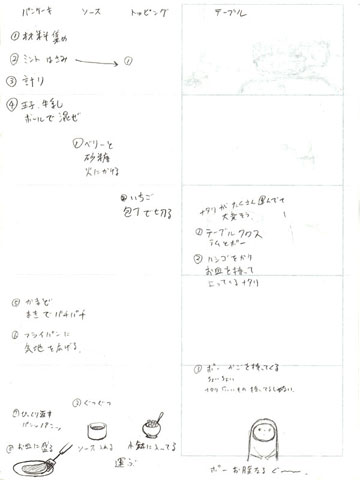 パンケーキ ソース トッピング テーブル
① 材料集め
② ミント はさみ → ①
③ 計り
④ 玉子、牛乳
ボールで混ぜ
① ベリーと
砂糖
火にかける
② いちご
包丁で切る
ナタリがたくさん運んでて
大変そう
① テーブルクロス
ラムとポー
② リンゴをかり
お皿を持って
ナタリ
⑤ かまど
まきでパチパチ
⑥ フライパンに
生地を広げる
② ぐつぐつ
⑦ ひっくり返す
⑧ お皿に盛る
ソース 入れる
小鉢に入ってる
運ぶ
③ ポー かごを持ってくる
ちょいちょい
ポー お腹なる ぐ〜